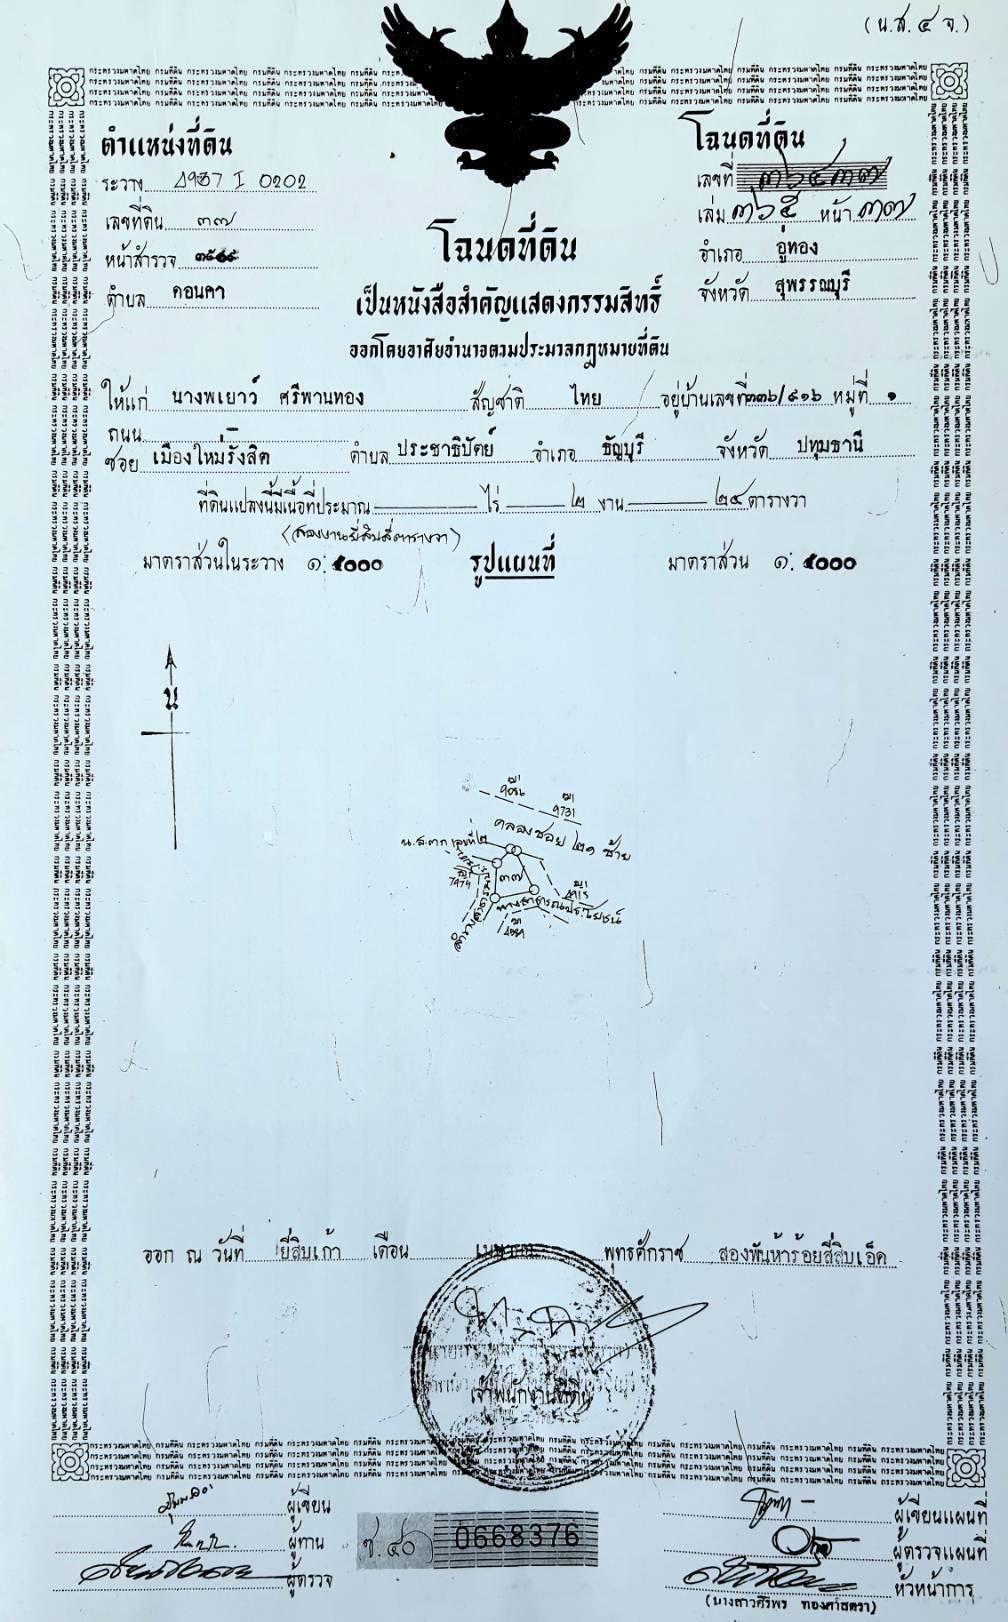 (น.ส. ๔ จ.)
ตำแหน่งที่ดิน
ระวาง 4937 I 0202
เลขที่ดิน ๓๗
หน้าสำรวจ
ตำบล ดอนคา
โฉนดที่ดิน
เลขที่ ๓๖๔๓๗
เล่ม ๓๖๕ หน้า ๓๗
อำเภอ อู่ทอง
จังหวัด สุพรรณบุรี
โฉนดที่ดิน
เป็นหนังสือสำคัญแสดงกรรมสิทธิ์
ออกโดยอาศัยอำนาจตามประมวลกฎหมายที่ดิน
ให้แก่ นางพเยาว์ ศรีพานทอง สัญชาติ ไทย อยู่บ้านเลขที่ ๓๓๖/๙๑๖ หมู่ที่ ๑
ถนน
ซอย เมืองใหม่รังสิต ตำบล ประชาธิปัตย์ อำเภอ ธัญบุรี จังหวัด ปทุมธานี
ที่ดินแปลงนี้มีเนื้อที่ประมาณ ไร่ ๒ งาน ๒๔ ตารางวา
(สองงานยี่สิบสี่ตารางวา)
มาตราส่วนในระวาง ๑: ๕๐๐๐ รูปแผนที่ มาตราส่วน ๑: ๕๐๐๐
น
9731
คลองซอย ๒๑ ซ้าย
น.ส.๓ก เลขที่ ๒
๓๗
7474
4915
ทางสาธารณประโยชน์
ออก ณ วันที่ ยี่สิบเก้า เดือน เมษายน พุทธศักราช สองพันห้าร้อยสี่สิบเอ็ด
เจ้าพนักงานที่ดิน
ผู้เขียน
ผู้ทาน
ผู้ตรวจ
ช.๔๐ 0668376
ผู้เขียนแผนที่
ผู้ตรวจแผนที่
หัวหน้าการ
(นางสาวศิริพร ทองศาสตรา)